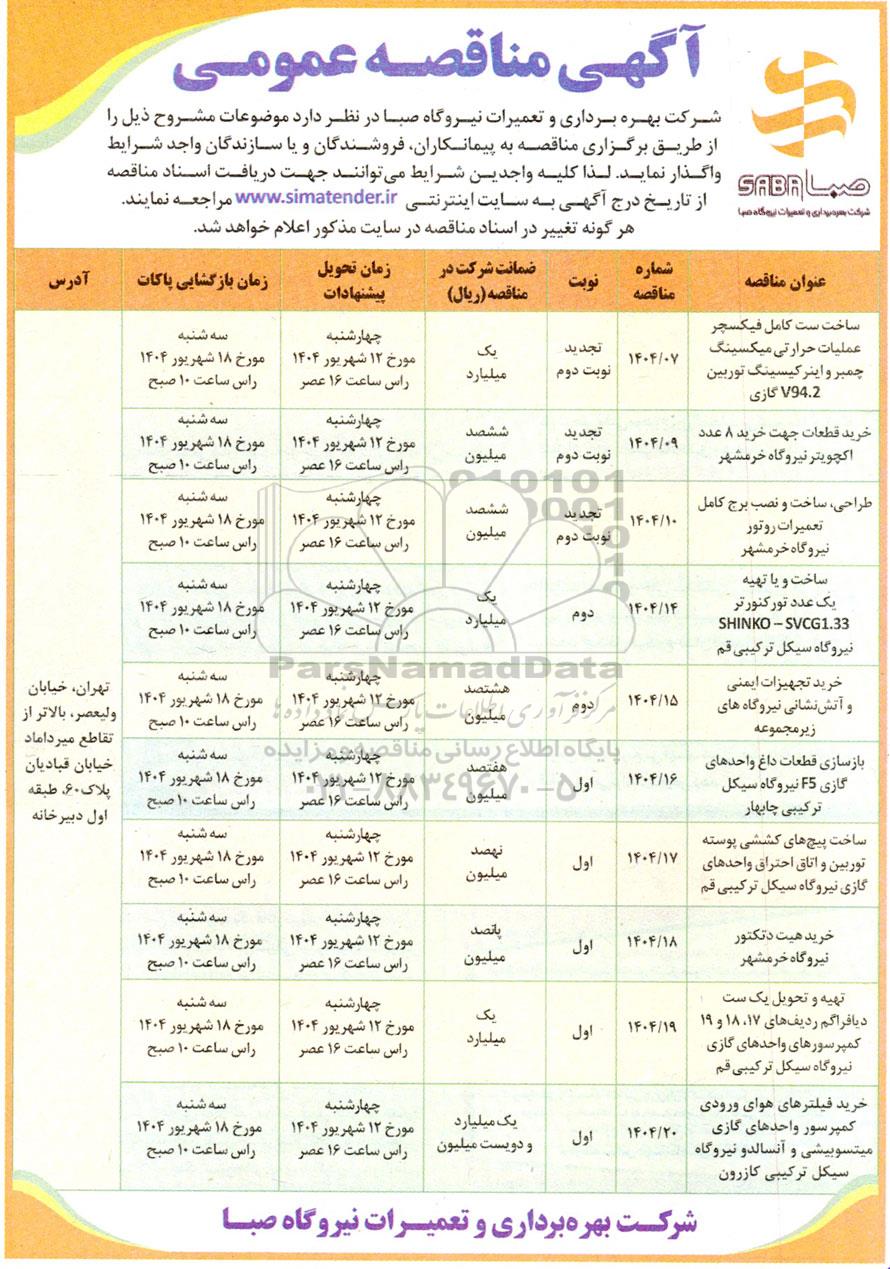 آگهی مناقصه عمومی
صبا SABA
شرکت بهره‌برداری و تعمیرات نیروگاه صبا
شرکت بهره برداری و تعمیرات نیروگاه صبا در نظر دارد موضوعات مشروح ذیل را
از طریق برگزاری مناقصه به پیمانکاران، فروشندگان و یا سازندگان واجد شرایط
واگذار نماید. لذا کلیه واجدین شرایط می‌توانند جهت دریافت اسناد مناقصه
از تاریخ درج آگهی به سایت اینترنتی www.simatender.ir مراجعه نمایند.
هر گونه تغییر در اسناد مناقصه در سایت مذکور اعلام خواهد شد.
عنوان مناقصه
شماره
مناقصه
نوبت
ضمانت شرکت در
مناقصه (ریال)
زمان تحویل
پیشنهادات
زمان بازگشایی پاکات
آدرس
ساخت ست کامل فیکسچر
عملیات حرارتی میکسینگ
چمبر و اینر کیسینگ توربین
V94.2 گازی
۱۴۰۴/۰۷
تجدید
نوبت دوم
یک
میلیارد
چهارشنبه
مورخ ۱۲ شهریور ۱۴۰۴
راس ساعت ۱۶ عصر
سه شنبه
مورخ ۱۸ شهریور ۱۴۰۴
راس ساعت ۱۰ صبح
خرید قطعات جهت خرید ۸ عدد
اکچویتر نیروگاه خرمشهر
۱۴۰۴/۰۹
تجدید
نوبت دوم
ششصد
میلیون
چهارشنبه
مورخ ۱۲ شهریور ۱۴۰۴
راس ساعت ۱۶ عصر
سه شنبه
مورخ ۱۸ شهریور ۱۴۰۴
راس ساعت ۱۰ صبح
طراحی، ساخت و نصب برج کامل
تعمیرات روتور
نیروگاه خرمشهر
۱۴۰۴/۱۰
تجدید
نوبت دوم
ششصد
میلیون
چهارشنبه
مورخ ۱۲ شهریور ۱۴۰۴
راس ساعت ۱۶ عصر
سه شنبه
مورخ ۱۸ شهریور ۱۴۰۴
راس ساعت ۱۰ صبح
ساخت و یا تهیه
یک عدد تورکنورتر
SHINKO – SVCG1.33
نیروگاه سیکل ترکیبی قم
۱۴۰۴/۱۴
دوم
یک
میلیارد
چهارشنبه
مورخ ۱۲ شهریور ۱۴۰۴
راس ساعت ۱۶ عصر
سه شنبه
مورخ ۱۸ شهریور ۱۴۰۴
راس ساعت ۱۰ صبح
خرید تجهیزات ایمنی
و آتش‌نشانی نیروگاه های
زیرمجموعه
۱۴۰۴/۱۵
دوم
هشتصد
میلیون
چهارشنبه
مورخ ۱۲ شهریور ۱۴۰۴
راس ساعت ۱۶ عصر
سه شنبه
مورخ ۱۸ شهریور ۱۴۰۴
راس ساعت ۱۰ صبح
بازسازی قطعات داغ واحدهای
گازی F5 نیروگاه سیکل
ترکیبی چابهار
۱۴۰۴/۱۶
اول
هفتصد
میلیون
چهارشنبه
مورخ ۱۲ شهریور ۱۴۰۴
راس ساعت ۱۶ عصر
سه شنبه
مورخ ۱۸ شهریور ۱۴۰۴
راس ساعت ۱۰ صبح
ساخت پیچ‌های کششی پوسته
توربین و اتاق احتراق واحدهای
گازی نیروگاه سیکل ترکیبی قم
۱۴۰۴/۱۷
اول
نهصد
میلیون
چهارشنبه
مورخ ۱۲ شهریور ۱۴۰۴
راس ساعت ۱۶ عصر
سه شنبه
مورخ ۱۸ شهریور ۱۴۰۴
راس ساعت ۱۰ صبح
خرید هیت دتکتور
نیروگاه خرمشهر
۱۴۰۴/۱۸
اول
پانصد
میلیون
چهارشنبه
مورخ ۱۲ شهریور ۱۴۰۴
راس ساعت ۱۶ عصر
سه شنبه
مورخ ۱۸ شهریور ۱۴۰۴
راس ساعت ۱۰ صبح
تهیه و تحویل یک ست
دیافراگم ردیف‌های ۱۷، ۱۸ و ۱۹
کمپرسورهای واحدهای گازی
نیروگاه سیکل ترکیبی قم
۱۴۰۴/۱۹
اول
یک
میلیارد
چهارشنبه
مورخ ۱۲ شهریور ۱۴۰۴
راس ساعت ۱۶ عصر
سه شنبه
مورخ ۱۸ شهریور ۱۴۰۴
راس ساعت ۱۰ صبح
خرید فیلترهای هوای ورودی
کمپرسور واحدهای گازی
میتسوبیشی و آنسالدو نیروگاه
سیکل ترکیبی کازرون
۱۴۰۴/۲۰
اول
یک میلیارد
و دویست میلیون
چهارشنبه
مورخ ۱۲ شهریور ۱۴۰۴
راس ساعت ۱۶ عصر
سه شنبه
مورخ ۱۸ شهریور ۱۴۰۴
راس ساعت ۱۰ صبح
تهران، خیابان
ولیعصر، بالاتر از
تقاطع میرداماد
خیابان قبادیان
پلاک ۶۰، طبقه
اول دبیرخانه
ParsNamadData
پایگاه اطلاع رسانی مناقصه و مزایده
۰۲۱-۸۸۳۴۹۶۷۰-۵
شرکت بهره‌برداری و تعمیرات نیروگاه صبا